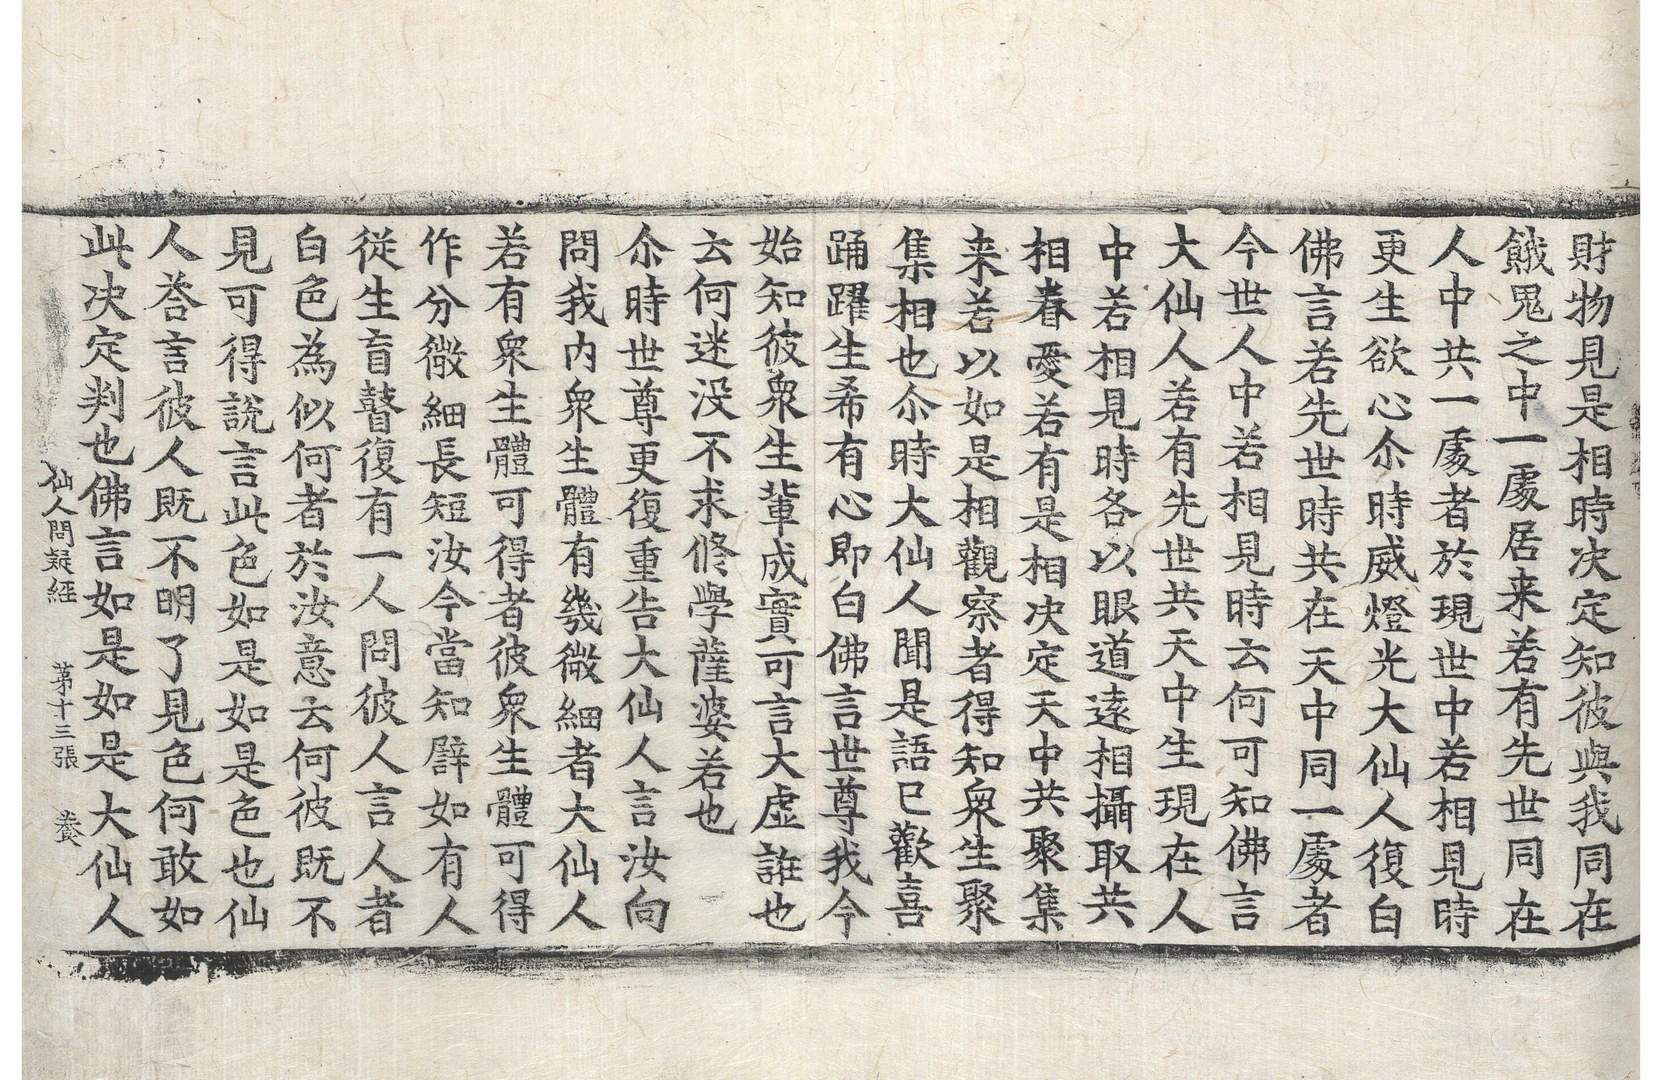 財物見是相時决定知彼與我同在
餓鬼之中一處居来若有先世同在
人中共一處者於現世中若相見時
更生欲心尒時威燈光大仙人復白
佛言若先世時共在天中同一處者
今世人中若相見時云何可知佛言
大仙人若有先世共天中生現在人
中若相見時各以眼道遠相攝取共
相眷愛若有是相决定天中共聚集
来若以如是相觀察者得知衆生聚
集相也尒時大仙人聞是語已歡喜
踊躍生希有心即白佛言世尊我今
始知彼衆生輩成實可言大虚誑也
云何迷没不求修學薩婆若也
尒時世尊更復重告大仙人言汝向
問我内衆生體有幾微細者大仙人
若有衆生體可得者彼衆生體可得
作分微細長短汝今當知譬如有人
従生盲瞽復有一人問彼人言人者
白色為似何者於汝意云何彼既不
見可得說言此色如是如是色也仙
人荅言彼人既不明了見色何敢如
此决定判也佛言如是如是大仙人
仙人問疑經 苐十三張 養